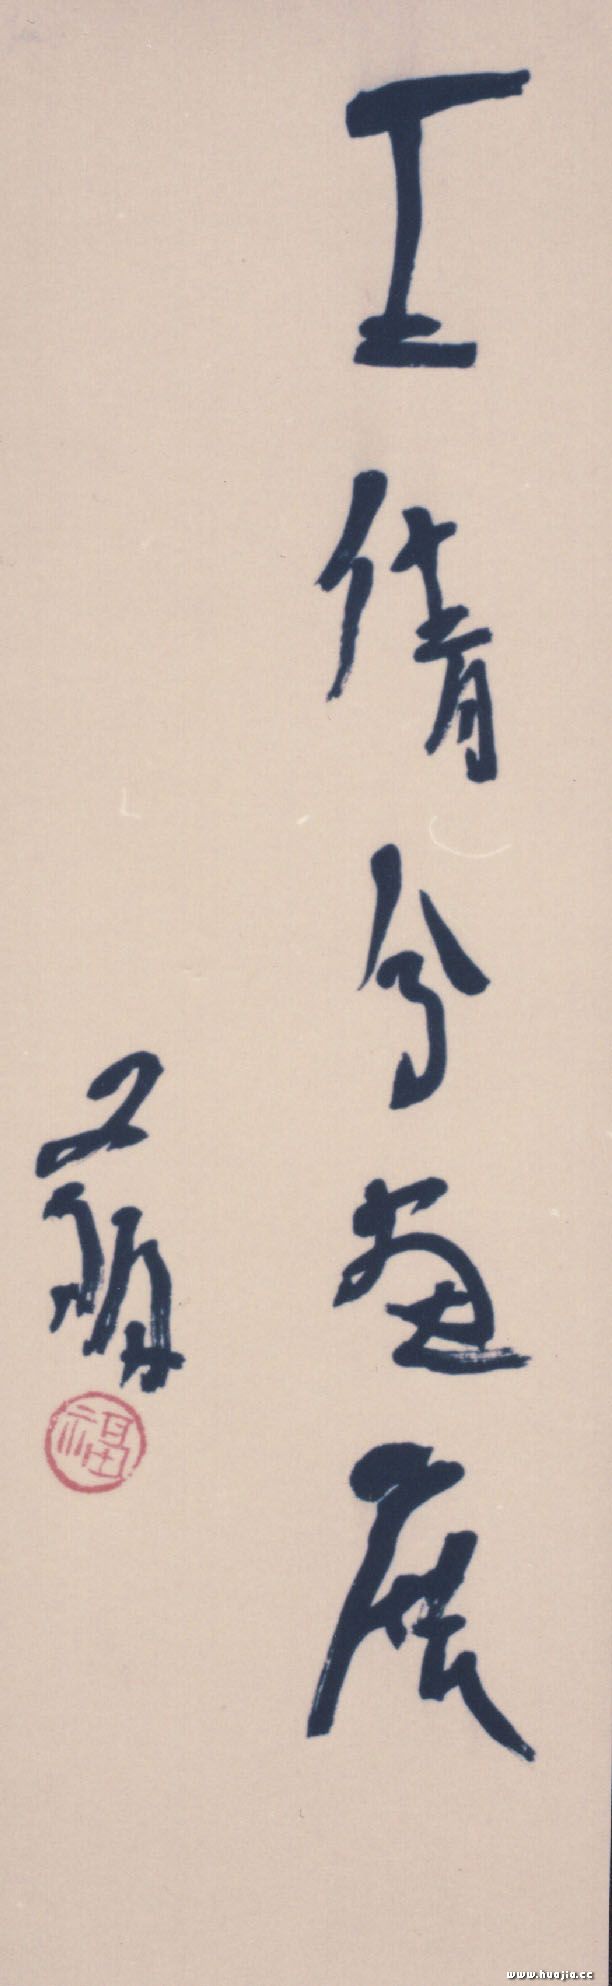 王倩兮画展
福
www.huajia.cc